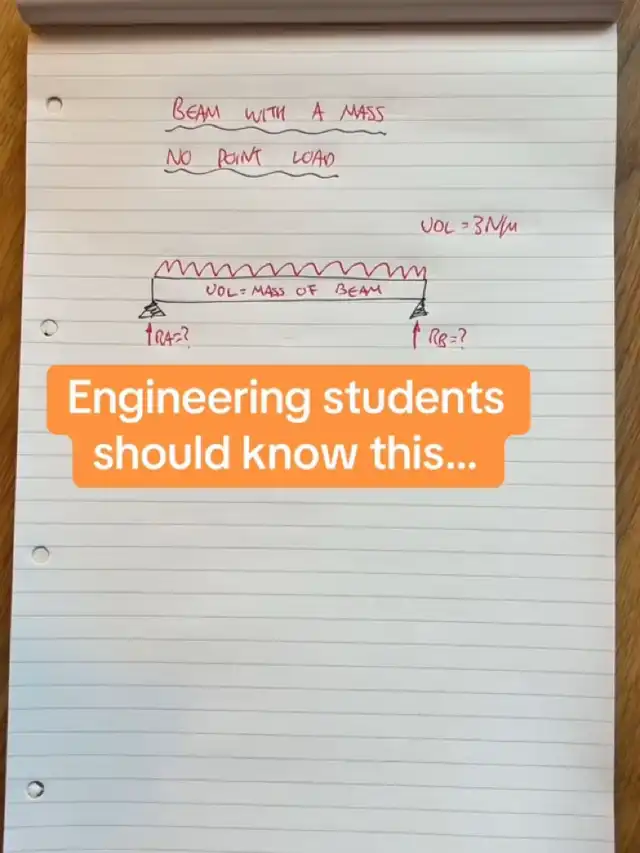 BEAM WITH A MASS
NO POINT LOAD
UDL = 3N/M
UDL = MASS OF BEAM
RA=?
RB=?
Engineering students
should know this...